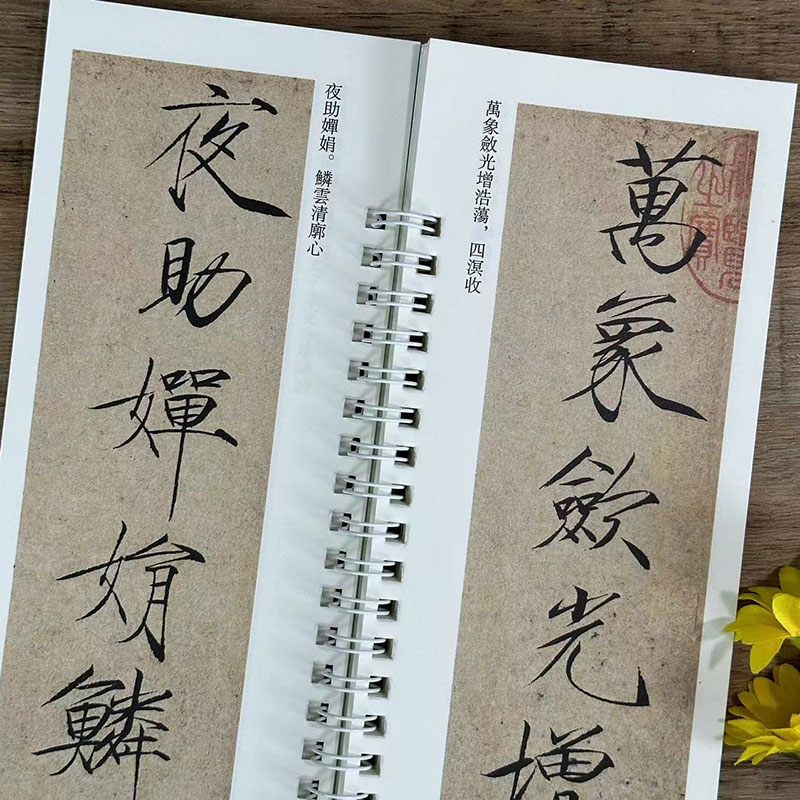 萬象歛光增
萬象斂光增浩蕩，四溟收
夜助嬋娟。鱗雲清廓心
夜助嬋娟鱗